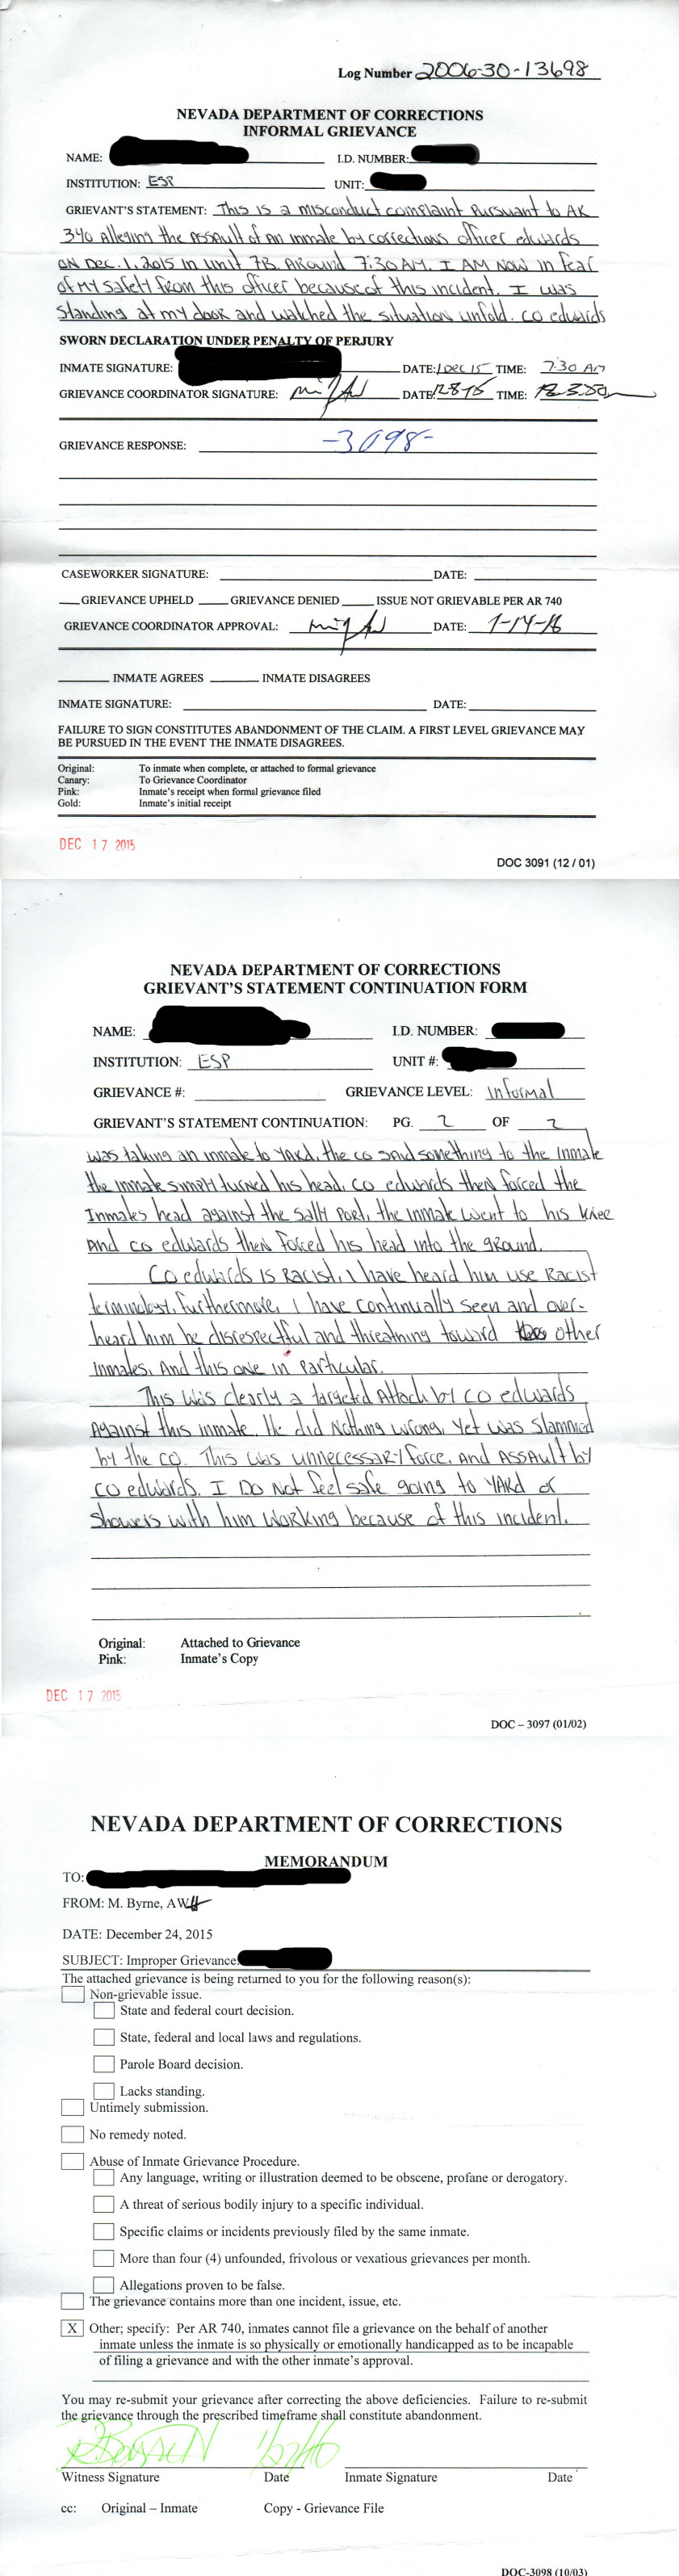 Log Number 2006-30-13698
NEVADA DEPARTMENT OF CORRECTIONS
INFORMAL GRIEVANCE
NAME: I.D. NUMBER:
INSTITUTION: ESP UNIT:
GRIEVANT'S STATEMENT: This is a misconduct complaint Pursuant to AR
340 Alleging the Assault of an inmate by corrections officer edwards
on Dec. 1, 2015 in unit 7B. Around 7:30 AM. I AM NOW in fear
of my safety from this officer because of this incident. I was
standing at my door and watched the situation unfold. CO edwards
SWORN DECLARATION UNDER PENALTY OF PERJURY
INMATE SIGNATURE: DATE: 1 Dec 15 TIME: 7:30 AM
GRIEVANCE COORDINATOR SIGNATURE: DATE: 12-8-15 TIME:
GRIEVANCE RESPONSE: -3098-
CASEWORKER SIGNATURE: DATE:
GRIEVANCE UPHELD GRIEVANCE DENIED ISSUE NOT GRIEVABLE PER AR 740
GRIEVANCE COORDINATOR APPROVAL: DATE: 1-14-16
INMATE AGREES INMATE DISAGREES
INMATE SIGNATURE: DATE:
FAILURE TO SIGN CONSTITUTES ABANDONMENT OF THE CLAIM. A FIRST LEVEL GRIEVANCE MAY
BE PURSUED IN THE EVENT THE INMATE DISAGREES.
Original: To inmate when complete, or attached to formal grievance
Canary: To Grievance Coordinator
Pink: Inmate's receipt when formal grievance filed
Gold: Inmate's initial receipt
DEC 17 2015
DOC 3091 (12 / 01)
NEVADA DEPARTMENT OF CORRECTIONS
GRIEVANT'S STATEMENT CONTINUATION FORM
NAME: I.D. NUMBER:
INSTITUTION: ESP UNIT #:
GRIEVANCE #: GRIEVANCE LEVEL: Informal
GRIEVANT'S STATEMENT CONTINUATION: PG. 2 OF 2
was taking an inmate to YARD. the co said something to the inmate
the inmate simply turned his head. CO edwards then forced the
Inmates head against the Sally Port. the inmate went to his knee
And co edwards then forced his head into the ground.
CO edwards is Racist. I have heard him use Racist
terminology, furthermore, I have continually seen and over-
heard him be disrespectful and threathing toward other
inmates. And this one in particular.
This was clearly a targeted Attack by CO edwards
Against this inmate. He did Nothing wrong, yet was slammed
by the CO. This was unnecessary force, and Assault by
CO edwards. I DO NOT feel safe going to YARD or
showers with him working because of this incident.
Original: Attached to Grievance
Pink: Inmate's Copy
DEC 17 2015
DOC – 3097 (01/02)
NEVADA DEPARTMENT OF CORRECTIONS
MEMORANDUM
TO:
FROM: M. Byrne, AW
DATE: December 24, 2015
SUBJECT: Improper Grievance
The attached grievance is being returned to you for the following reason(s):
Non-grievable issue.
State and federal court decision.
State, federal and local laws and regulations.
Parole Board decision.
Lacks standing.
Untimely submission.
No remedy noted.
Abuse of Inmate Grievance Procedure.
Any language, writing or illustration deemed to be obscene, profane or derogatory.
A threat of serious bodily injury to a specific individual.
Specific claims or incidents previously filed by the same inmate.
More than four (4) unfounded, frivolous or vexatious grievances per month.
Allegations proven to be false.
The grievance contains more than one incident, issue, etc.
X Other; specify: Per AR 740, inmates cannot file a grievance on the behalf of another
inmate unless the inmate is so physically or emotionally handicapped as to be incapable
of filing a grievance and with the other inmate's approval.
You may re-submit your grievance after correcting the above deficiencies. Failure to re-submit
the grievance through the prescribed timeframe shall constitute abandonment.
Witness Signature Date Inmate Signature Date
cc: Original – Inmate Copy - Grievance File
DOC-3098 (10/03)